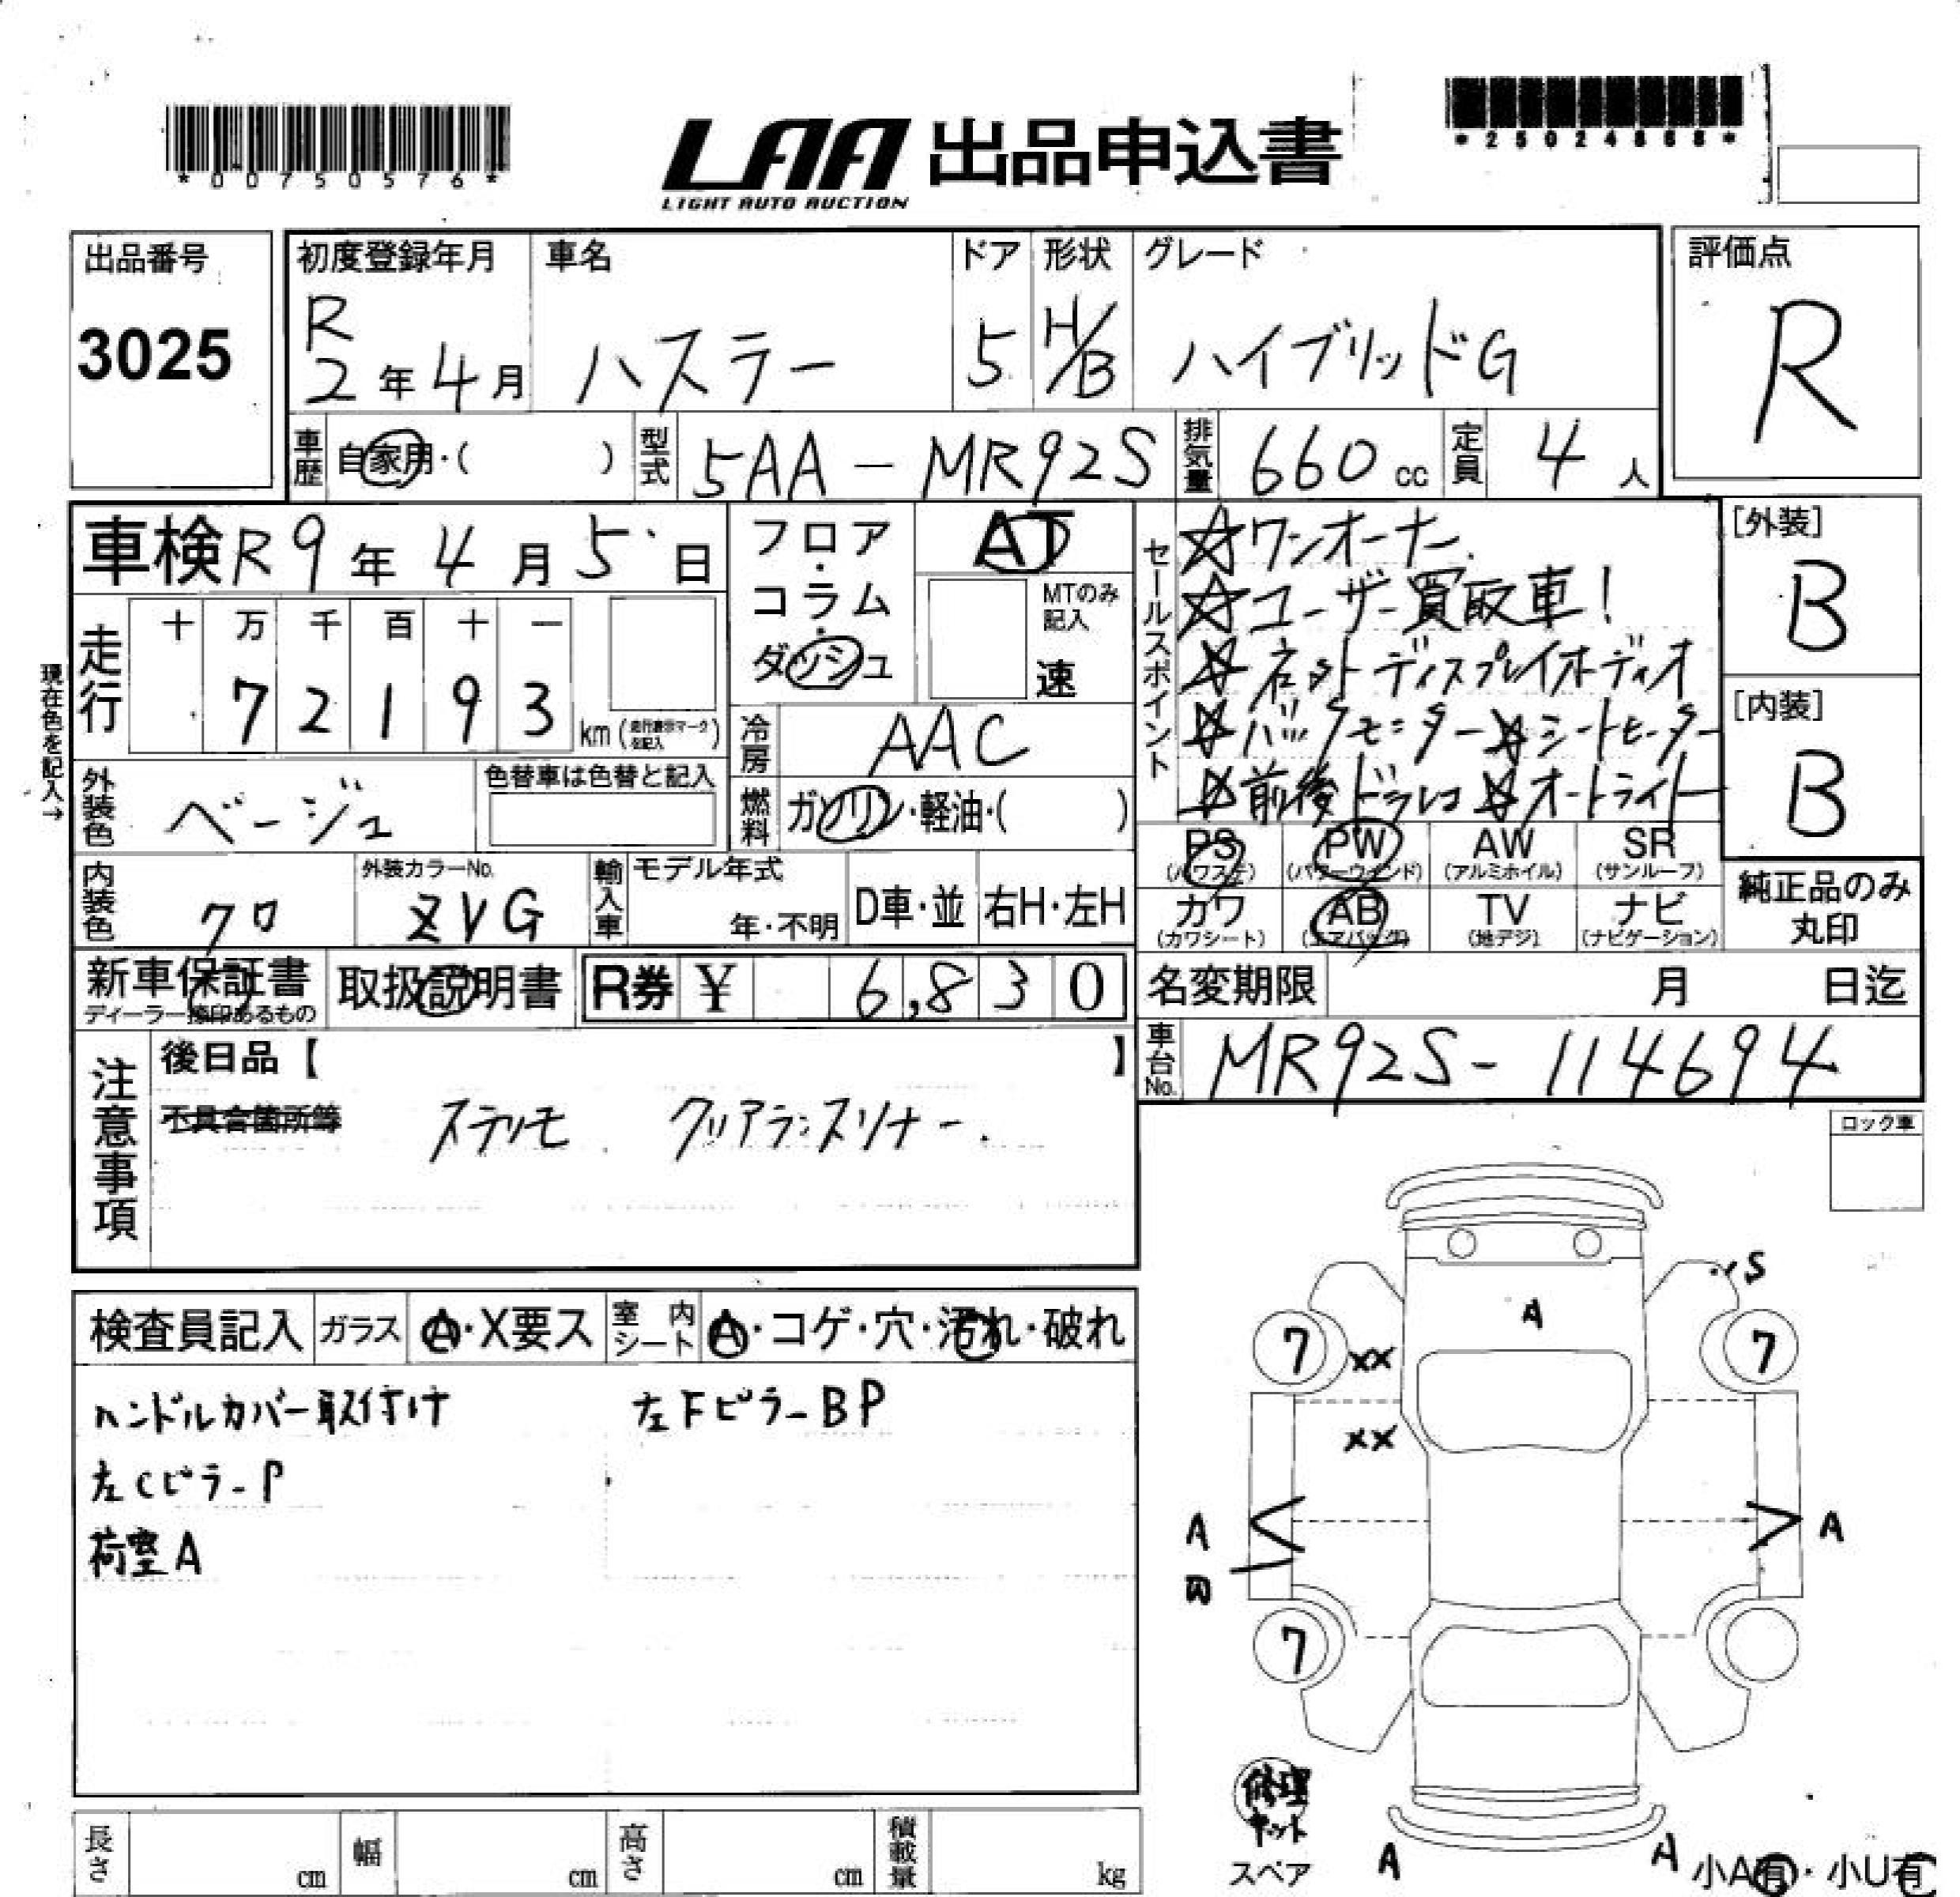 *00750576*
LAA 出品申込書
LIGHT AUTO AUCTION
*25024868*
出品番号
3025
初度登録年月
R
2年4月
車名
ハスラー
ドア
5
形状
H/B
グレード
ハイブリッドG
評価点
R
車歴 自家用・( )
型式 5AA-MR92S
排気量 660cc
定員 4人
車検 R9年4月5日
フロア・コラム・ダッシュ
AT
MTのみ記入
速
セールスポイント
☆ワンオーナー
☆ユーザー買取車!
☆ネットディスプレイオーディオ
☆バックモニター☆シートヒーター
☆前後ドラレコ☆オートライト
[外装]
B
[内装]
B
現在色を記入→
走行 十万千百十一
72193 km (走行表示マークを記入)
冷房 AAC
燃料 ガソリン・軽油・( )
外装色 ベージュ
色替車は色替と記入
内装色 クロ
外装カラーNo.
ZVG
輸入車 モデル年式
年・不明
D車・並
右H・左H
PS (パワステ)
PW (パワーウインド)
AW (アルミホイル)
SR (サンルーフ)
カワ (カワシート)
AB (エアバッグ)
TV (地デジ)
ナビ (ナビゲーション)
純正品のみ丸印
新車保証書
ディーラー捺印あるもの
取扱説明書
R券 ¥ 6,830
名変期限 月 日迄
車台No. MR92S-114694
注意事項
後日品【 】
不具合箇所等
ステリモ クリアランスソナー.
ロック車
検査員記入
ガラス A・X要ス
室内シート A・コゲ・穴・汚れ・破れ
ハンドルカバー取付け
左FピラーBP
左CピラーP
荷室A
S
A
7
XX
7
XX
A
A
7
修理キット
スペア
A
A
小A有・小U有
長さ cm
幅 cm
高さ cm
積載量 kg